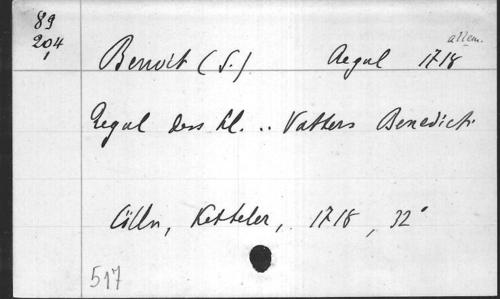 89
204
1
allem.
Benoit (S.) Regul 1718
Regul dess hl. .. Vatters Benedicti
Cölln, Ketteler, 1718, 32°
517